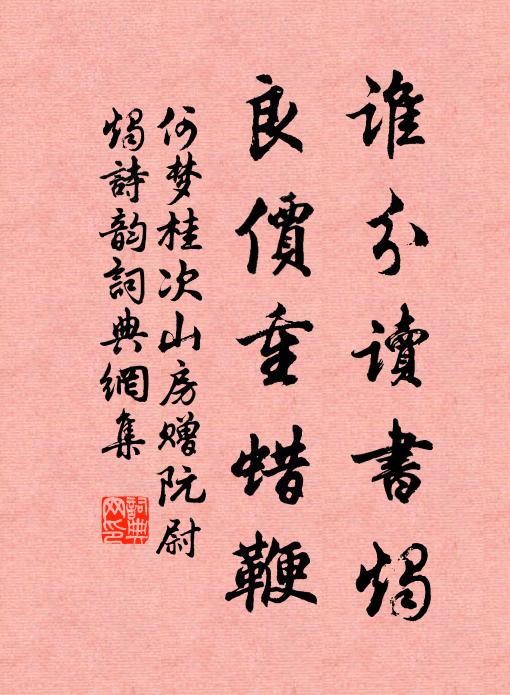 谁分读書燭
良價重蜡鞭
何梦桂次山房赠阮尉
燭詩韵詞典網集
詞典网印